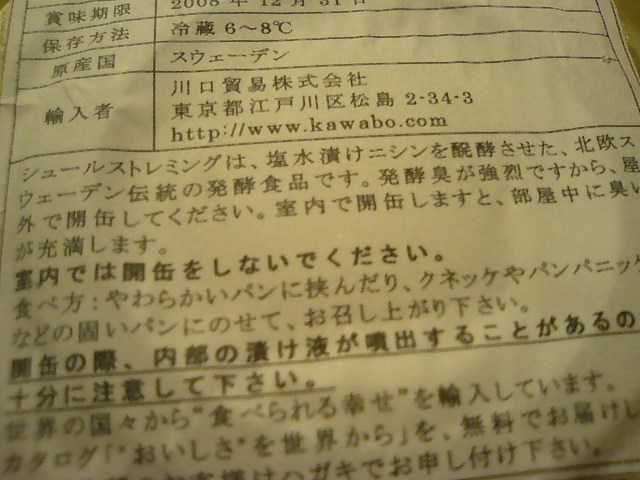 賞味期限 2008年12月31日
保存方法 冷蔵6～8℃
原産国 スウェーデン
輸入者 川口貿易株式会社
東京都江戸川区松島2-34-3
http://www.kawabo.com
シュールストレミングは、塩水漬けニシンを醗酵させた、北欧ス
ウェーデン伝統の発酵食品です。発酵臭が強烈ですから、屋
外で開缶してください。室内で開缶しますと、部屋中に臭い
が充満します。
室内では開缶をしないでください。
食べ方：やわらかいパンに挟んだり、クネッケやパンパニッケ
などの固いパンにのせて、お召し上がり下さい。
開缶の際、内部の漬け液が噴出することがあるの
十分に注意して下さい。
世界の国々から“食べられる幸せ”を輸入しています。
カタログ「“おいしさ”を世界から」を、無料でお届けし
お客様はハガキでお申し付け下さい。